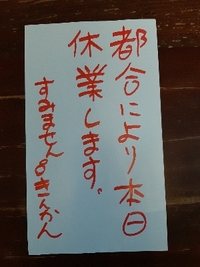 都合により本日
休業します。
すみません。きんかん